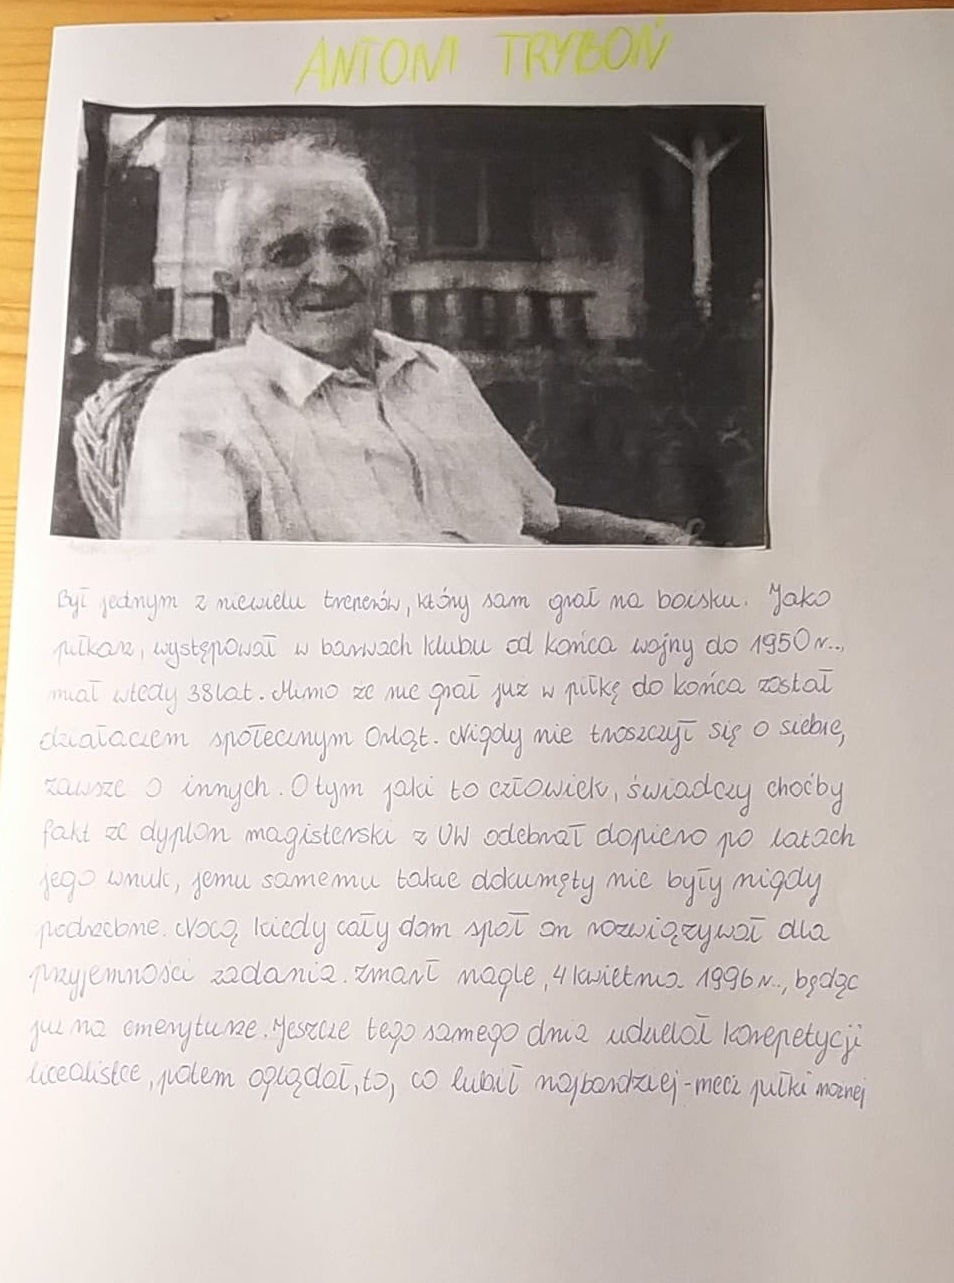 ANTONI TRYBOŃ
Był jednym z niewielu trenerów, który sam grał na boisku. Jako
piłkarz, występował w barwach klubu od końca wojny do 1950 r..,
miał wtedy 38 lat. Mimo że nie grał już w piłkę do końca został
działaczem społecznym Orląt. Nigdy nie troszczył się o siebie,
zawsze o innych. O tym jaki to człowiek, świadczy choćby
fakt że dyplom magisterski z UW odebrał dopiero po latach
jego wnuk, jemu samemu takie dokumęty nie były nigdy
podrzebne. Nocą kiedy cały dom spał on rozwiązywał dla
przyjemności zadania. Zmarł nagle, 4 kwietnia 1996 r.., będąc
już na emeryturze. Jeszcze tego samego dnia udzielał korepetycji
licealistce, potem oglądał, to, co lubił najbardziej - mecz piłki nożnej